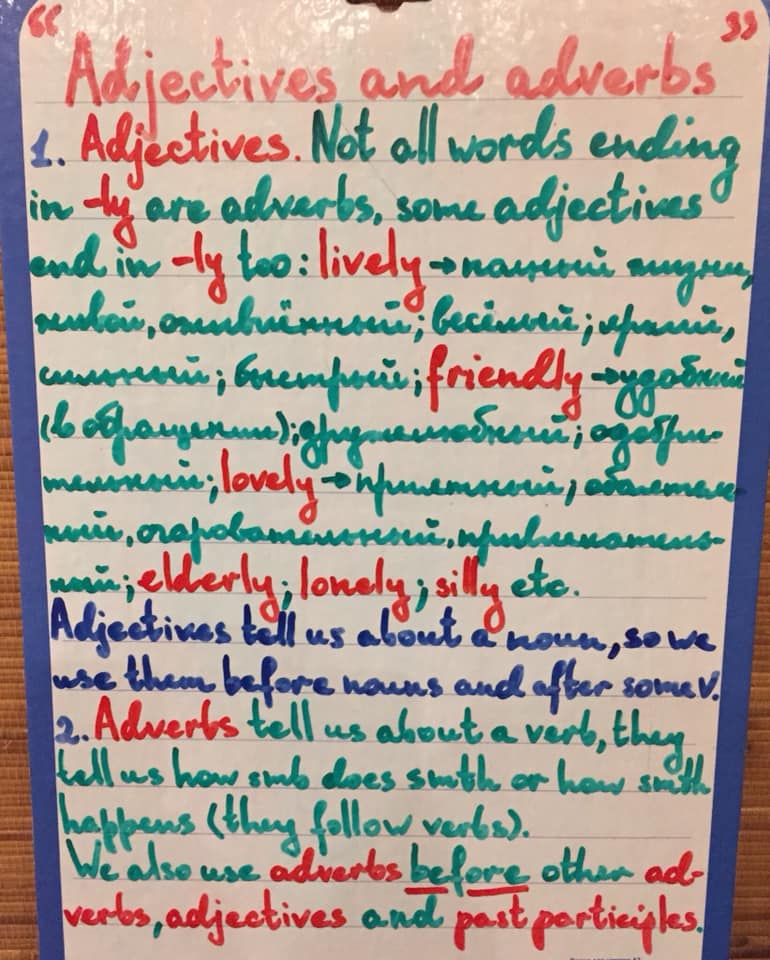 “ ”
Adjectives and adverbs
1. Adjectives. Not all words ending
in -ly are adverbs, some adjectives
end in -ly too: lively → полный жизни,
живой, оживлённый; весёлый; яркий,
сильный; быстрый; friendly → удобный
(в обращении); дружелюбный; одобри-
тельный; lovely → приятный; обаятель-
ный, очаровательный, привлекатель-
ный; elderly; lonely; silly etc.
Adjectives tell us about a noun, so we
use them before nouns and after some v.
2. Adverbs tell us about a verb, they
tell us how smb does smth or how smth
happens (they follow verbs).
We also use adverbs before other ad-
verbs, adjectives and past participles.